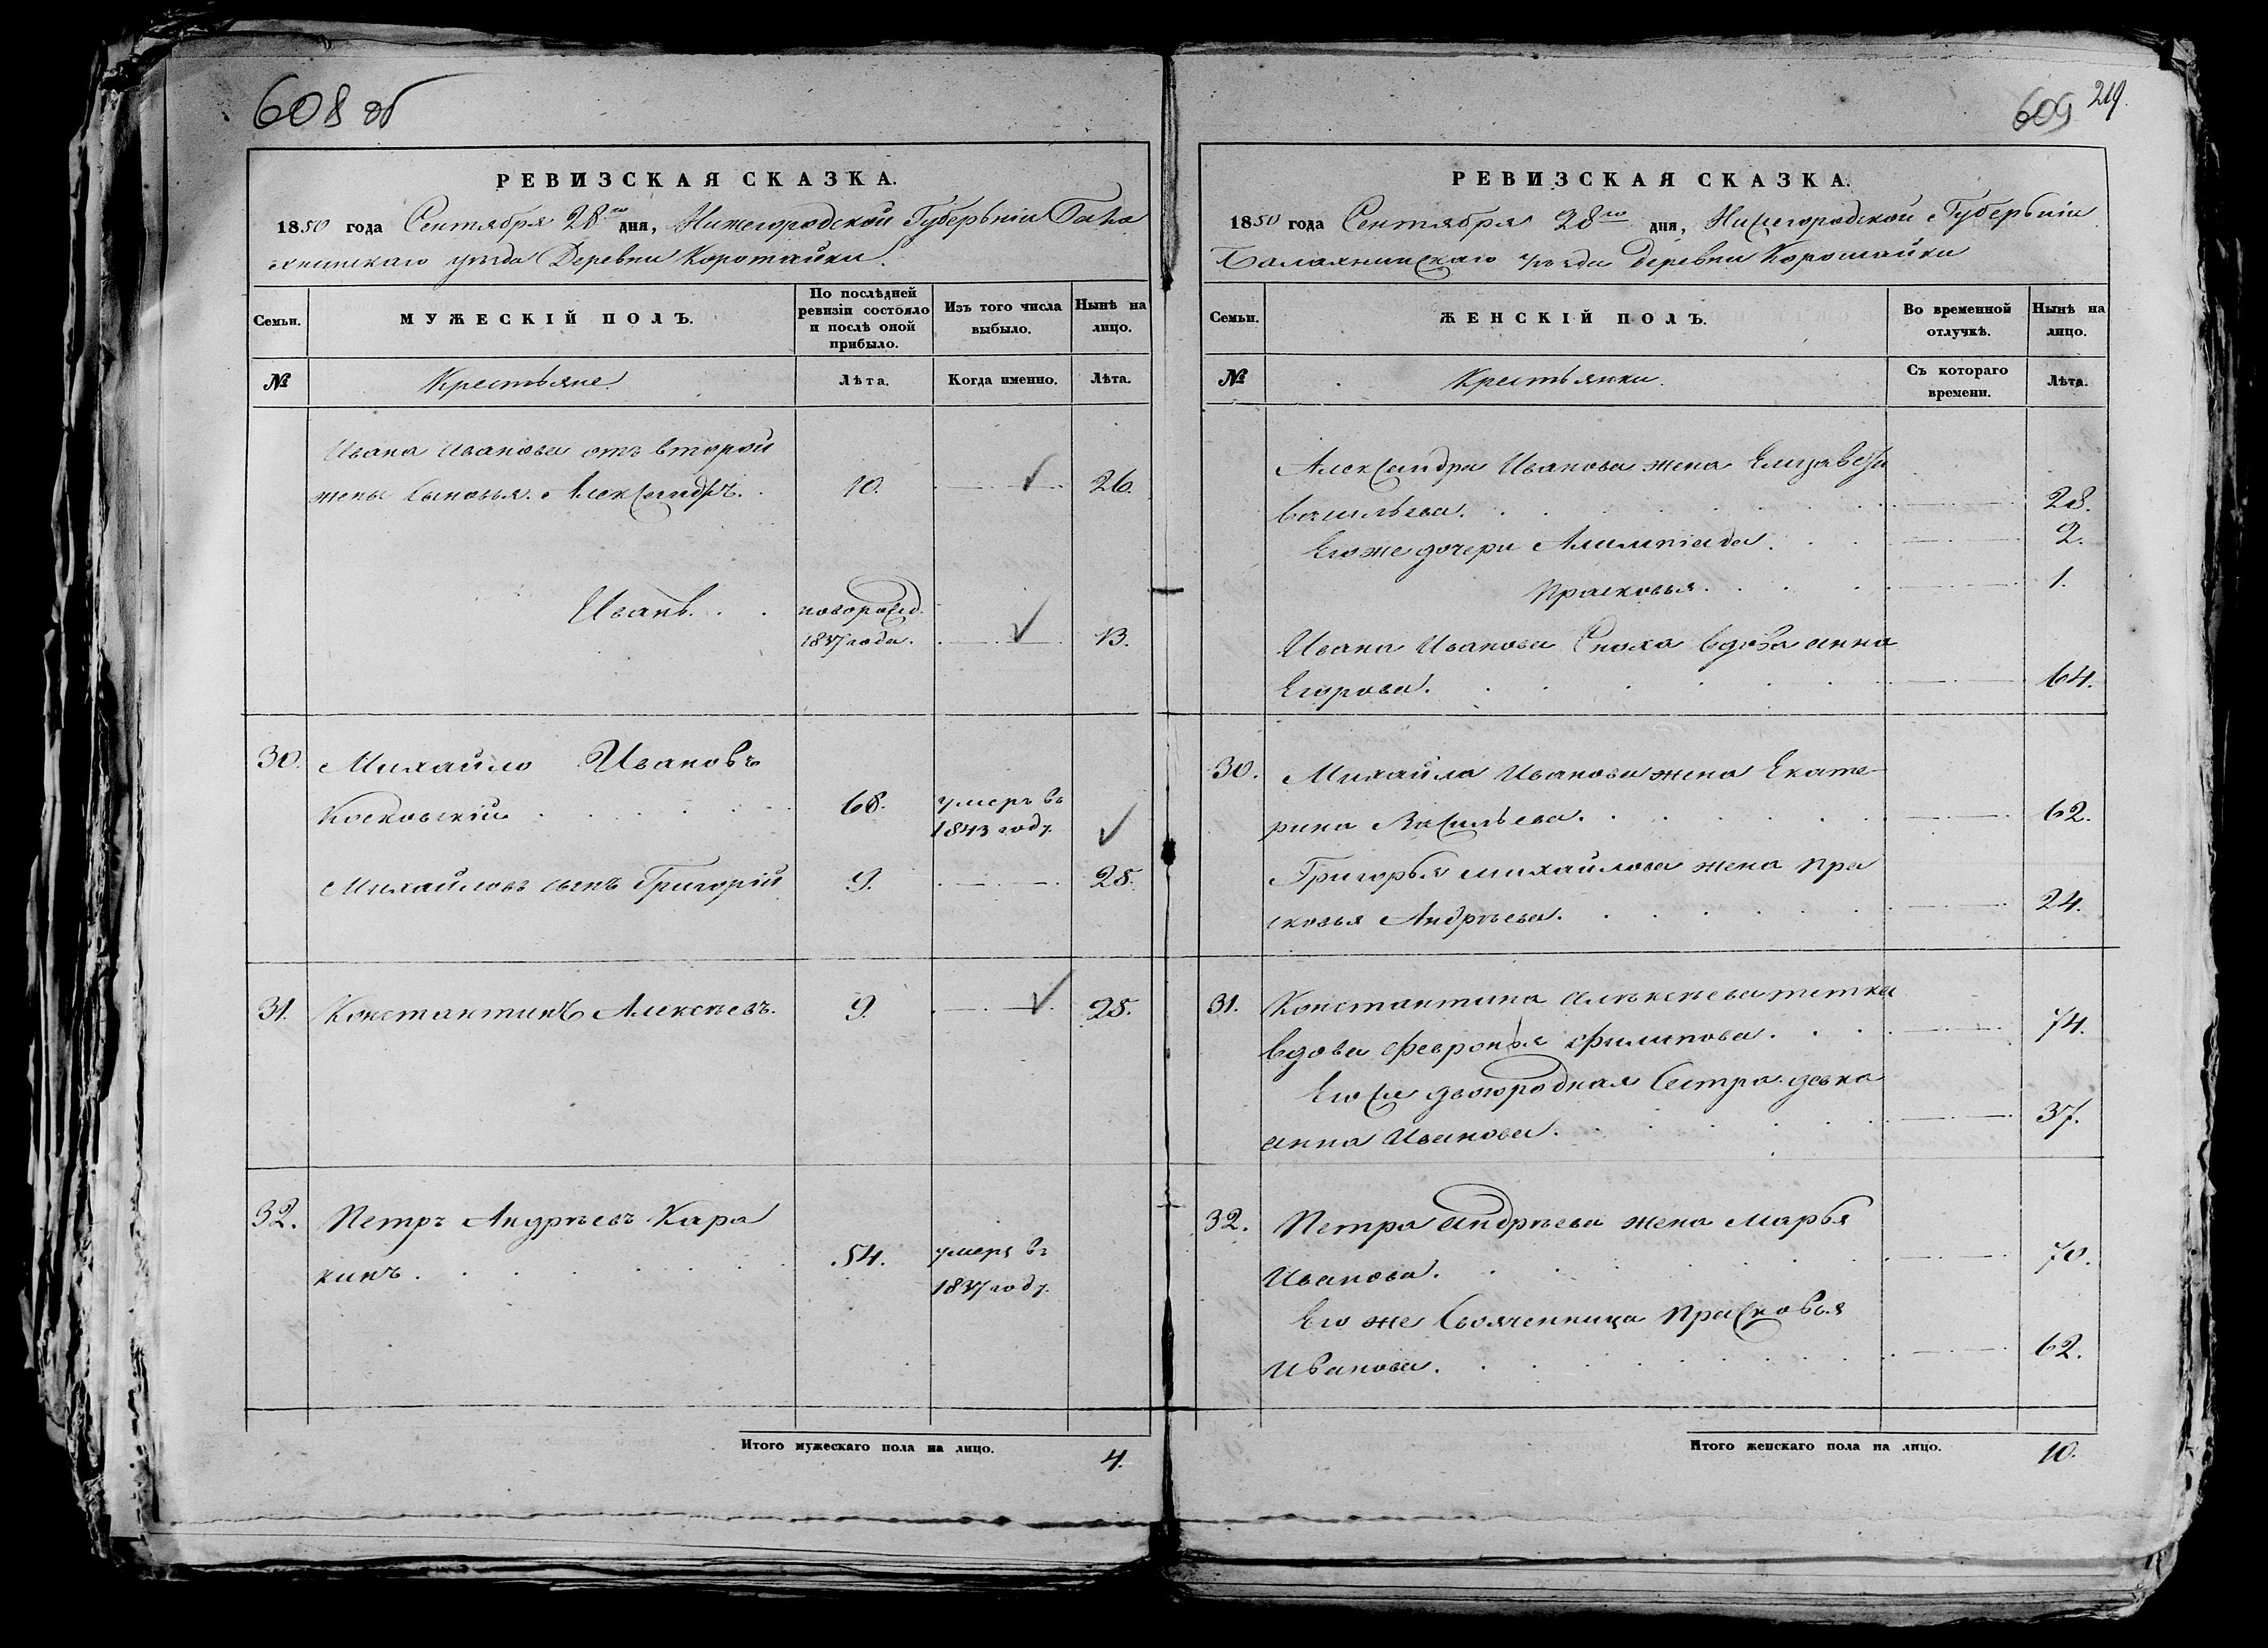 608 об
РЕВИЗСКАЯ СКАЗКА.
1850 года Сентября 28го дня, Нижегородской Губерніи Бала
хнинскаго уѣзда Деревни Коротайки.
Семьи.
МУЖЕСКІЙ ПОЛЪ.
По послѣдней ревизіи состояло и послѣ оной прибыло.
Изъ того числа выбыло.
Нынѣ на лицо.
№
Крестьяне.
Лѣта.
Когда именно.
Лѣта.
Ивана Иванова отъ второй
жены сыновья. Александръ. 10. 26.
Иванъ. новорожд. 1837 года. 13.
30. Михайло Ивановъ
68. умеръ въ 1843 году
Михайловъ сынъ Григорій 9. 25.
31. Константинъ Алексѣевъ. 9. 25.
32. Петръ Андрѣевъ Кара
кинъ. 54. умеръ въ 1837 году.
Итого мужескаго пола на лицо. 4.
609 219.
РЕВИЗСКАЯ СКАЗКА.
1850 года Сентября 28го дня, Нижегородской Губерніи
Балахнинскаго уѣзда Деревни Коротайки
Семьи.
ЖЕНСКІЙ ПОЛЪ.
Во временной отлучкѣ.
Нынѣ на лицо.
№
Крестьянки.
Съ котораго времени.
Лѣта.
Александра Иванова жена Елизавета
васильева. 28.
Его же дочери Алимпіада. 2.
Прасковья. 1.
Ивана Иванова Сноха вдова анна
Егорова. 64.
30. Михайла Иванова жена Екате-
рина Васильева. 62.
Григорья михайлова жена пра
сковья Андрѣева. 24.
31. Константина алѣксѣева тетка
вдова февронья филипова. 74.
Его же двоюродная Сестра девка
анна Иванова. 37.
32. Петра андрѣева жена марья
Иванова. 70.
Его же Своячениица прасковья
Иванова. 62.
Итого женскаго пола на лицо. 10.